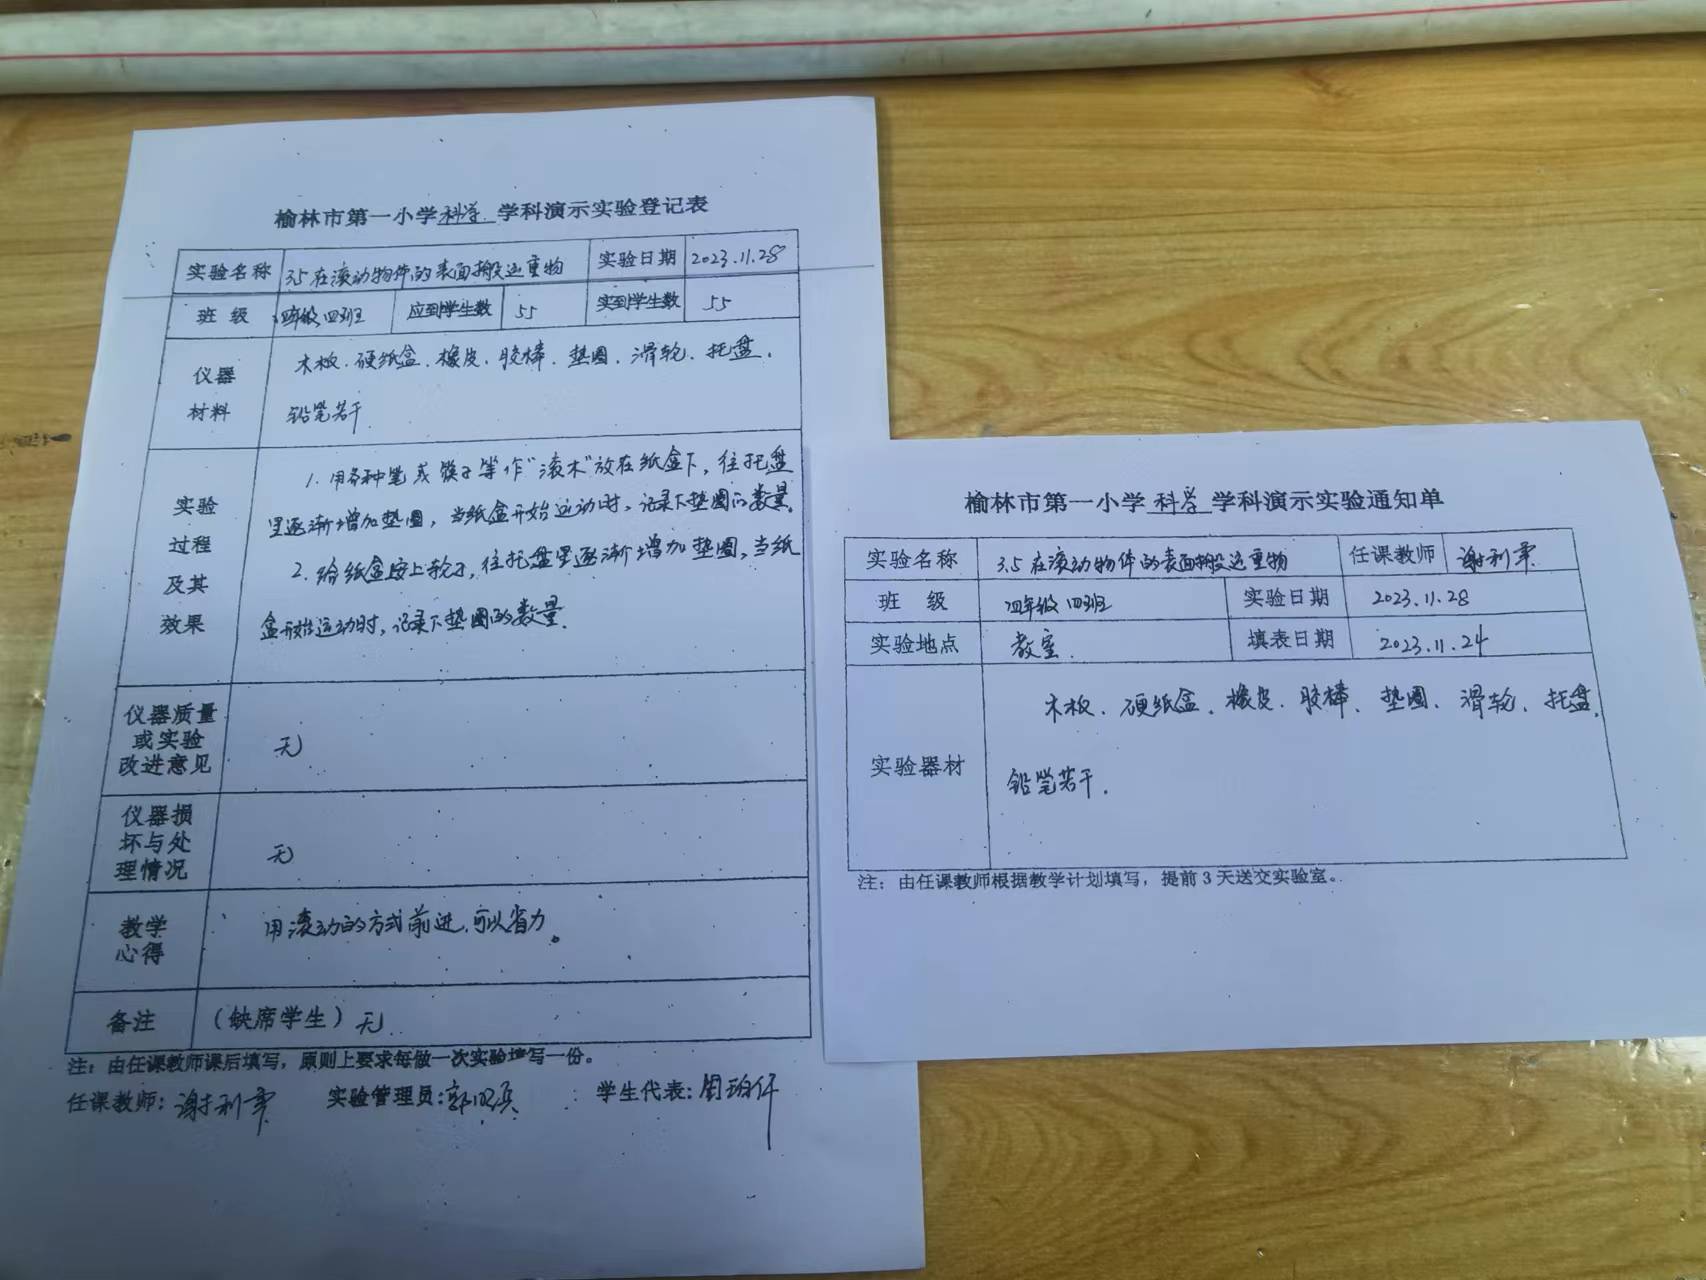 榆林市第一小学 科学 学科演示实验登记表
实验名称 3.5在滚动物体的表面搬运重物 实验日期 2023.11.28
班 级 四年级四班 应到学生数 55 实到学生数 55
仪器
材料
木板、硬纸盒、橡皮、胶棒、垫圈、滑轮、托盘、
铅笔若干
实验
过程
及其
效果
1. 用各种笔或筷子等作“滚木”放在纸盒下，往托盘
里逐渐增加垫圈，当纸盒开始运动时，记录下垫圈的数量。
2. 给纸盒安上轮子，往托盘里逐渐增加垫圈，当纸
盒开始运动时，记录下垫圈的数量.
仪器质量
或实验
改进意见
无
仪器损
坏与处
理情况
无
教学
心得
用滚动的方式前进，可以省力。
备注 （缺席学生）无
注：由任课教师课后填写，原则上要求每做一次实验填写一份。
任课教师: 谢利 实验管理员: 学生代表: 周
榆林市第一小学 科学 学科演示实验通知单
实验名称 3.5在滚动物体的表面搬运重物 任课教师 谢利
班 级 四年级四班 实验日期 2023.11.28
实验地点 教室. 填表日期 2023.11.24
实验器材
木板、硬纸盒、橡皮、胶棒、垫圈、滑轮、托盘、
铅笔若干.
注：由任课教师根据教学计划填写，提前3天送交实验室。